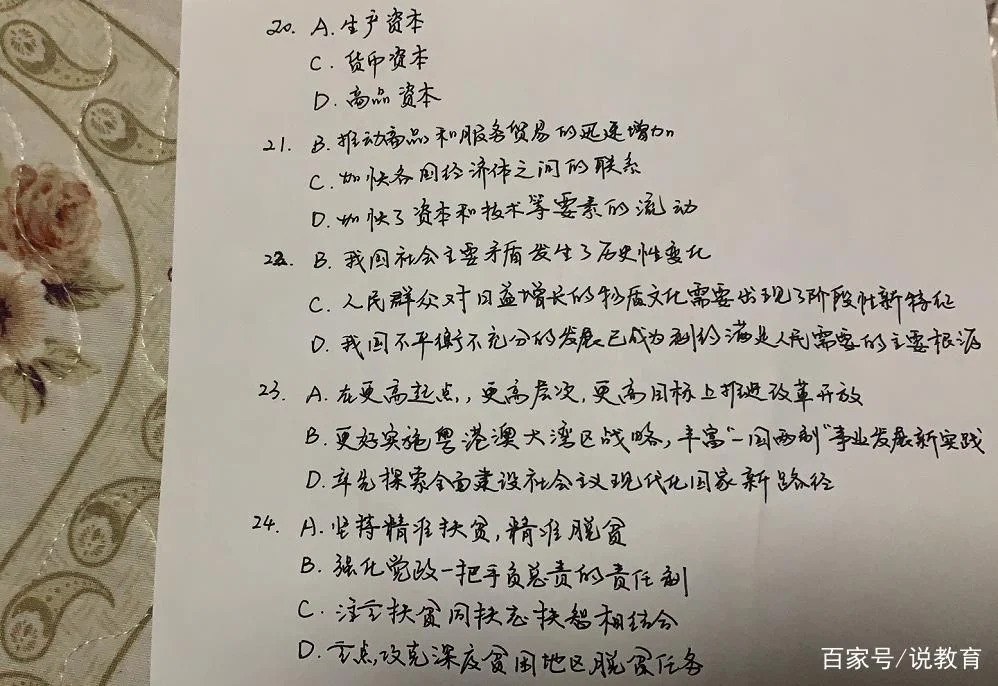 20. A. 生产资本
C. 货币资本
D. 商品资本
21. B. 推动商品和服务贸易的迅速增加
C. 加快各国经济体之间的联系
D. 加快了资本和技术等要素的流动
22. B. 我国社会主要矛盾发生了历史性变化
C. 人民群众对日益增长的物质文化需要出现了阶段性新特征
D. 我国不平衡不充分的发展已成为制约满足人民需要的主要根源
23. A. 在更高起点,,更高层次,更高目标上推进改革开放
B. 更好实施粤港澳大湾区战略,丰富“一国两制”事业发展新实践
D. 率先探索全面建设社会主义现代化国家新路径
24. A. 坚持精准扶贫,精准脱贫
B. 强化党政一把手负总责的责任制
C. 注重扶贫同扶志扶智相结合
D. 重点攻克深度贫困地区脱贫任务
百家号/说教育